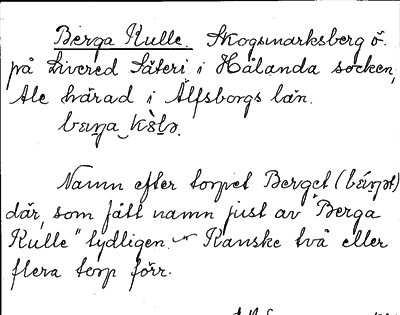 Berga Kulle. Skogsmarksberg ö.
på Livered Säteri i Hålanda socken,
Ale härad i Älfsborgs län.
Namn efter torpet Berget
där, som fått namn just av "Berga
Kulle" tydligen. Kanske två eller
flera torp förr.